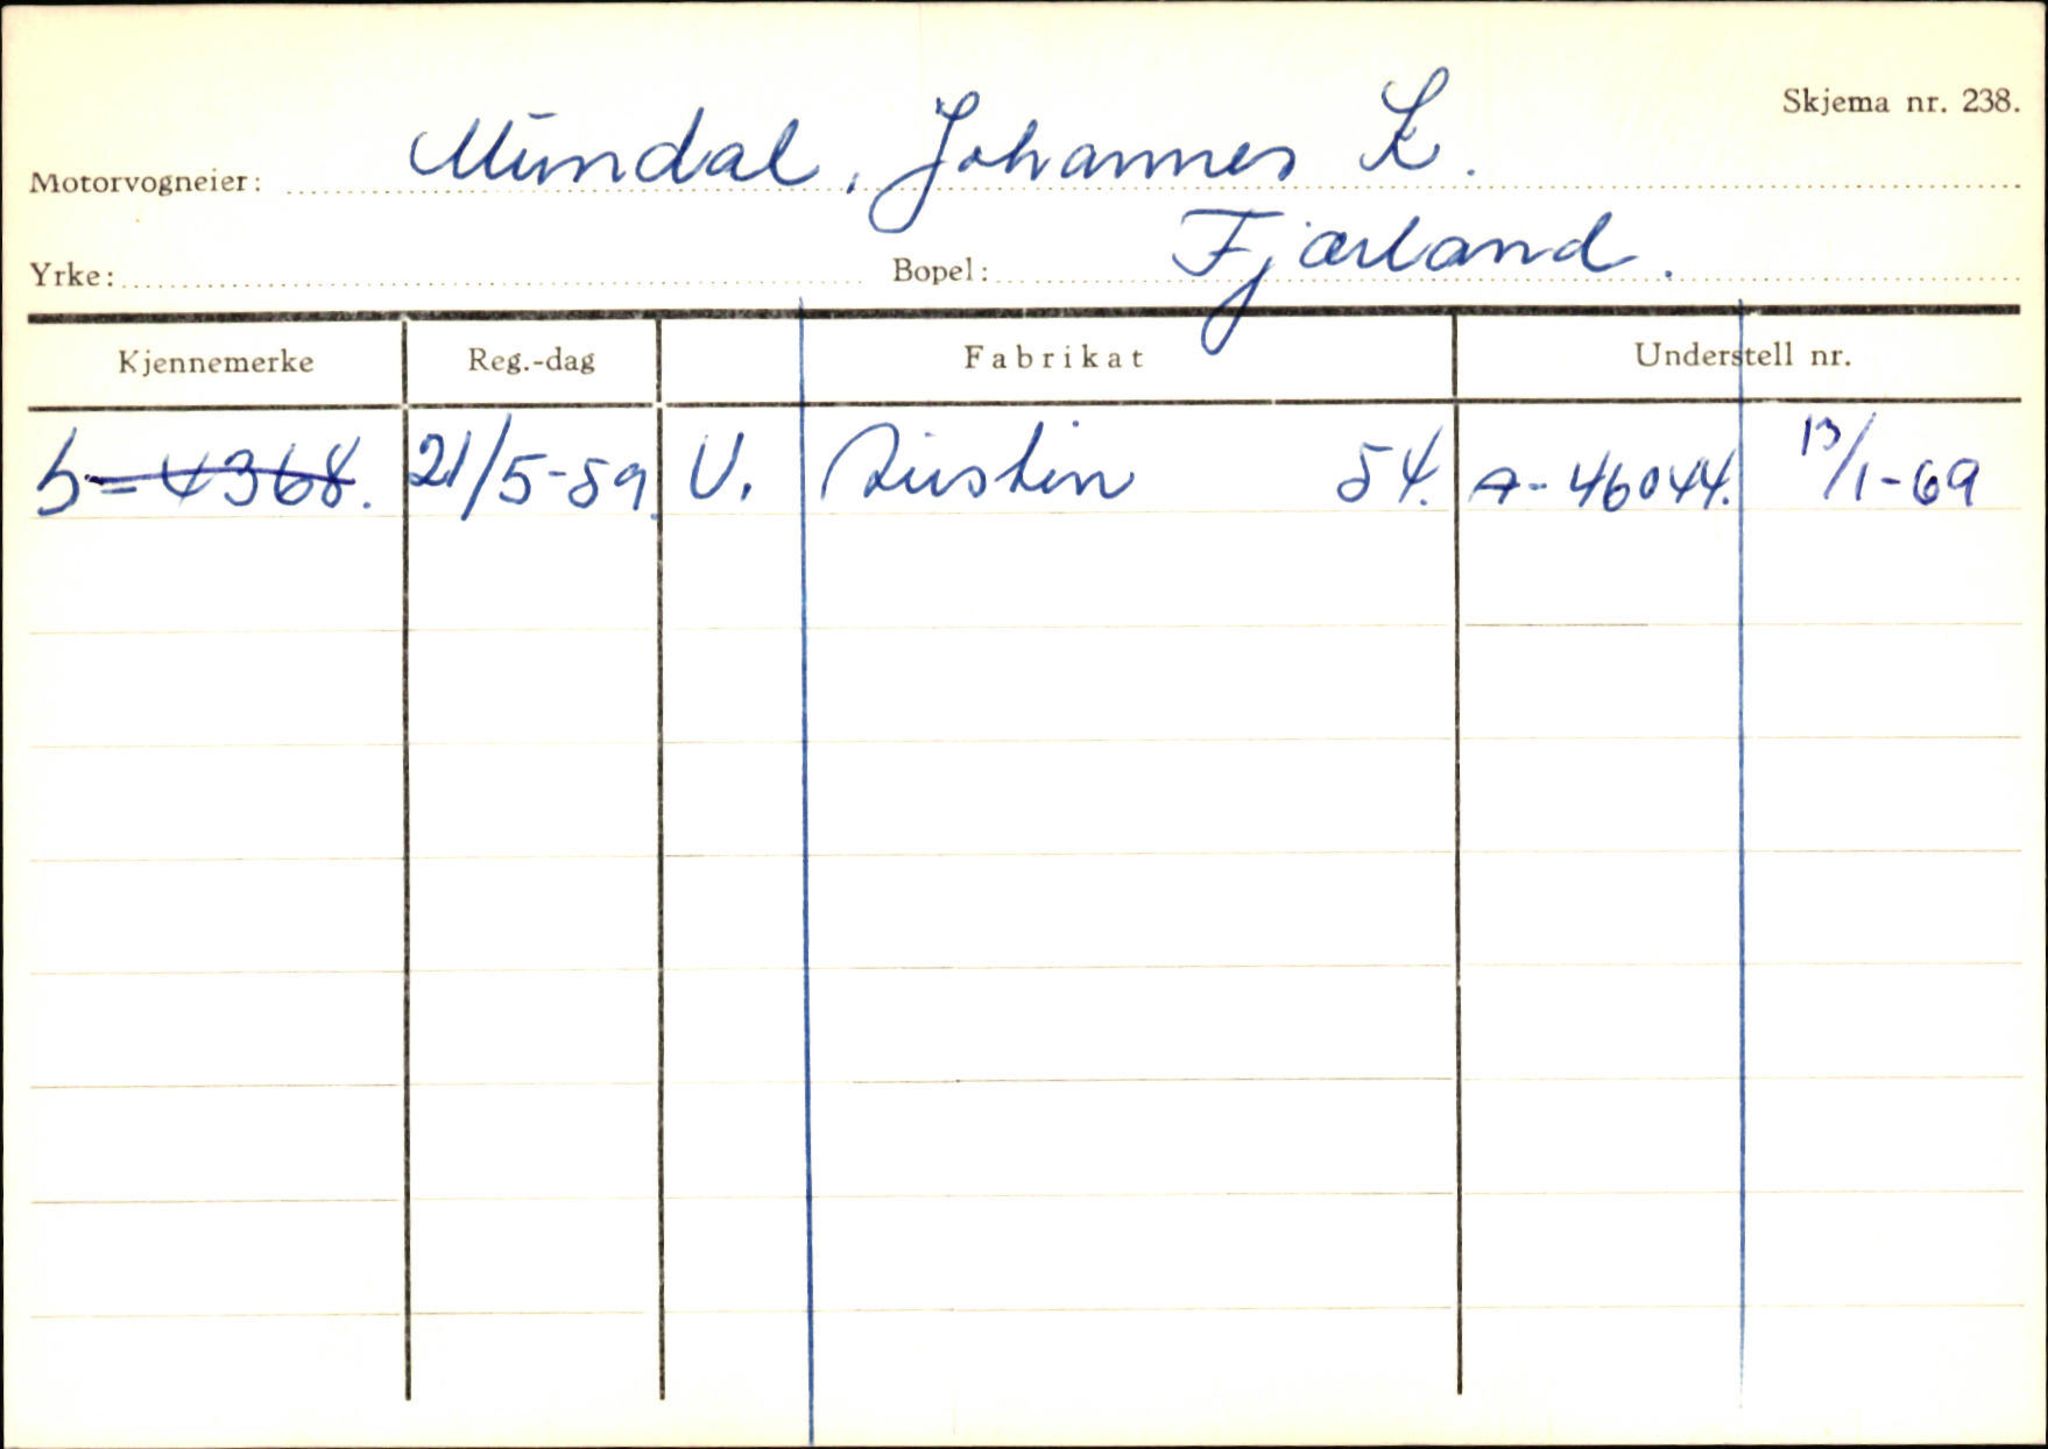 Skjema nr. 238.
Motorvogneier: Mundal, Johannes L.
Yrke: Bopel: Fjærland.
Kjennemerke Reg.-dag Fabrikat Understell nr.
S-4368. 21/5-59. V. Austin 54. A-46044. 13/1-69